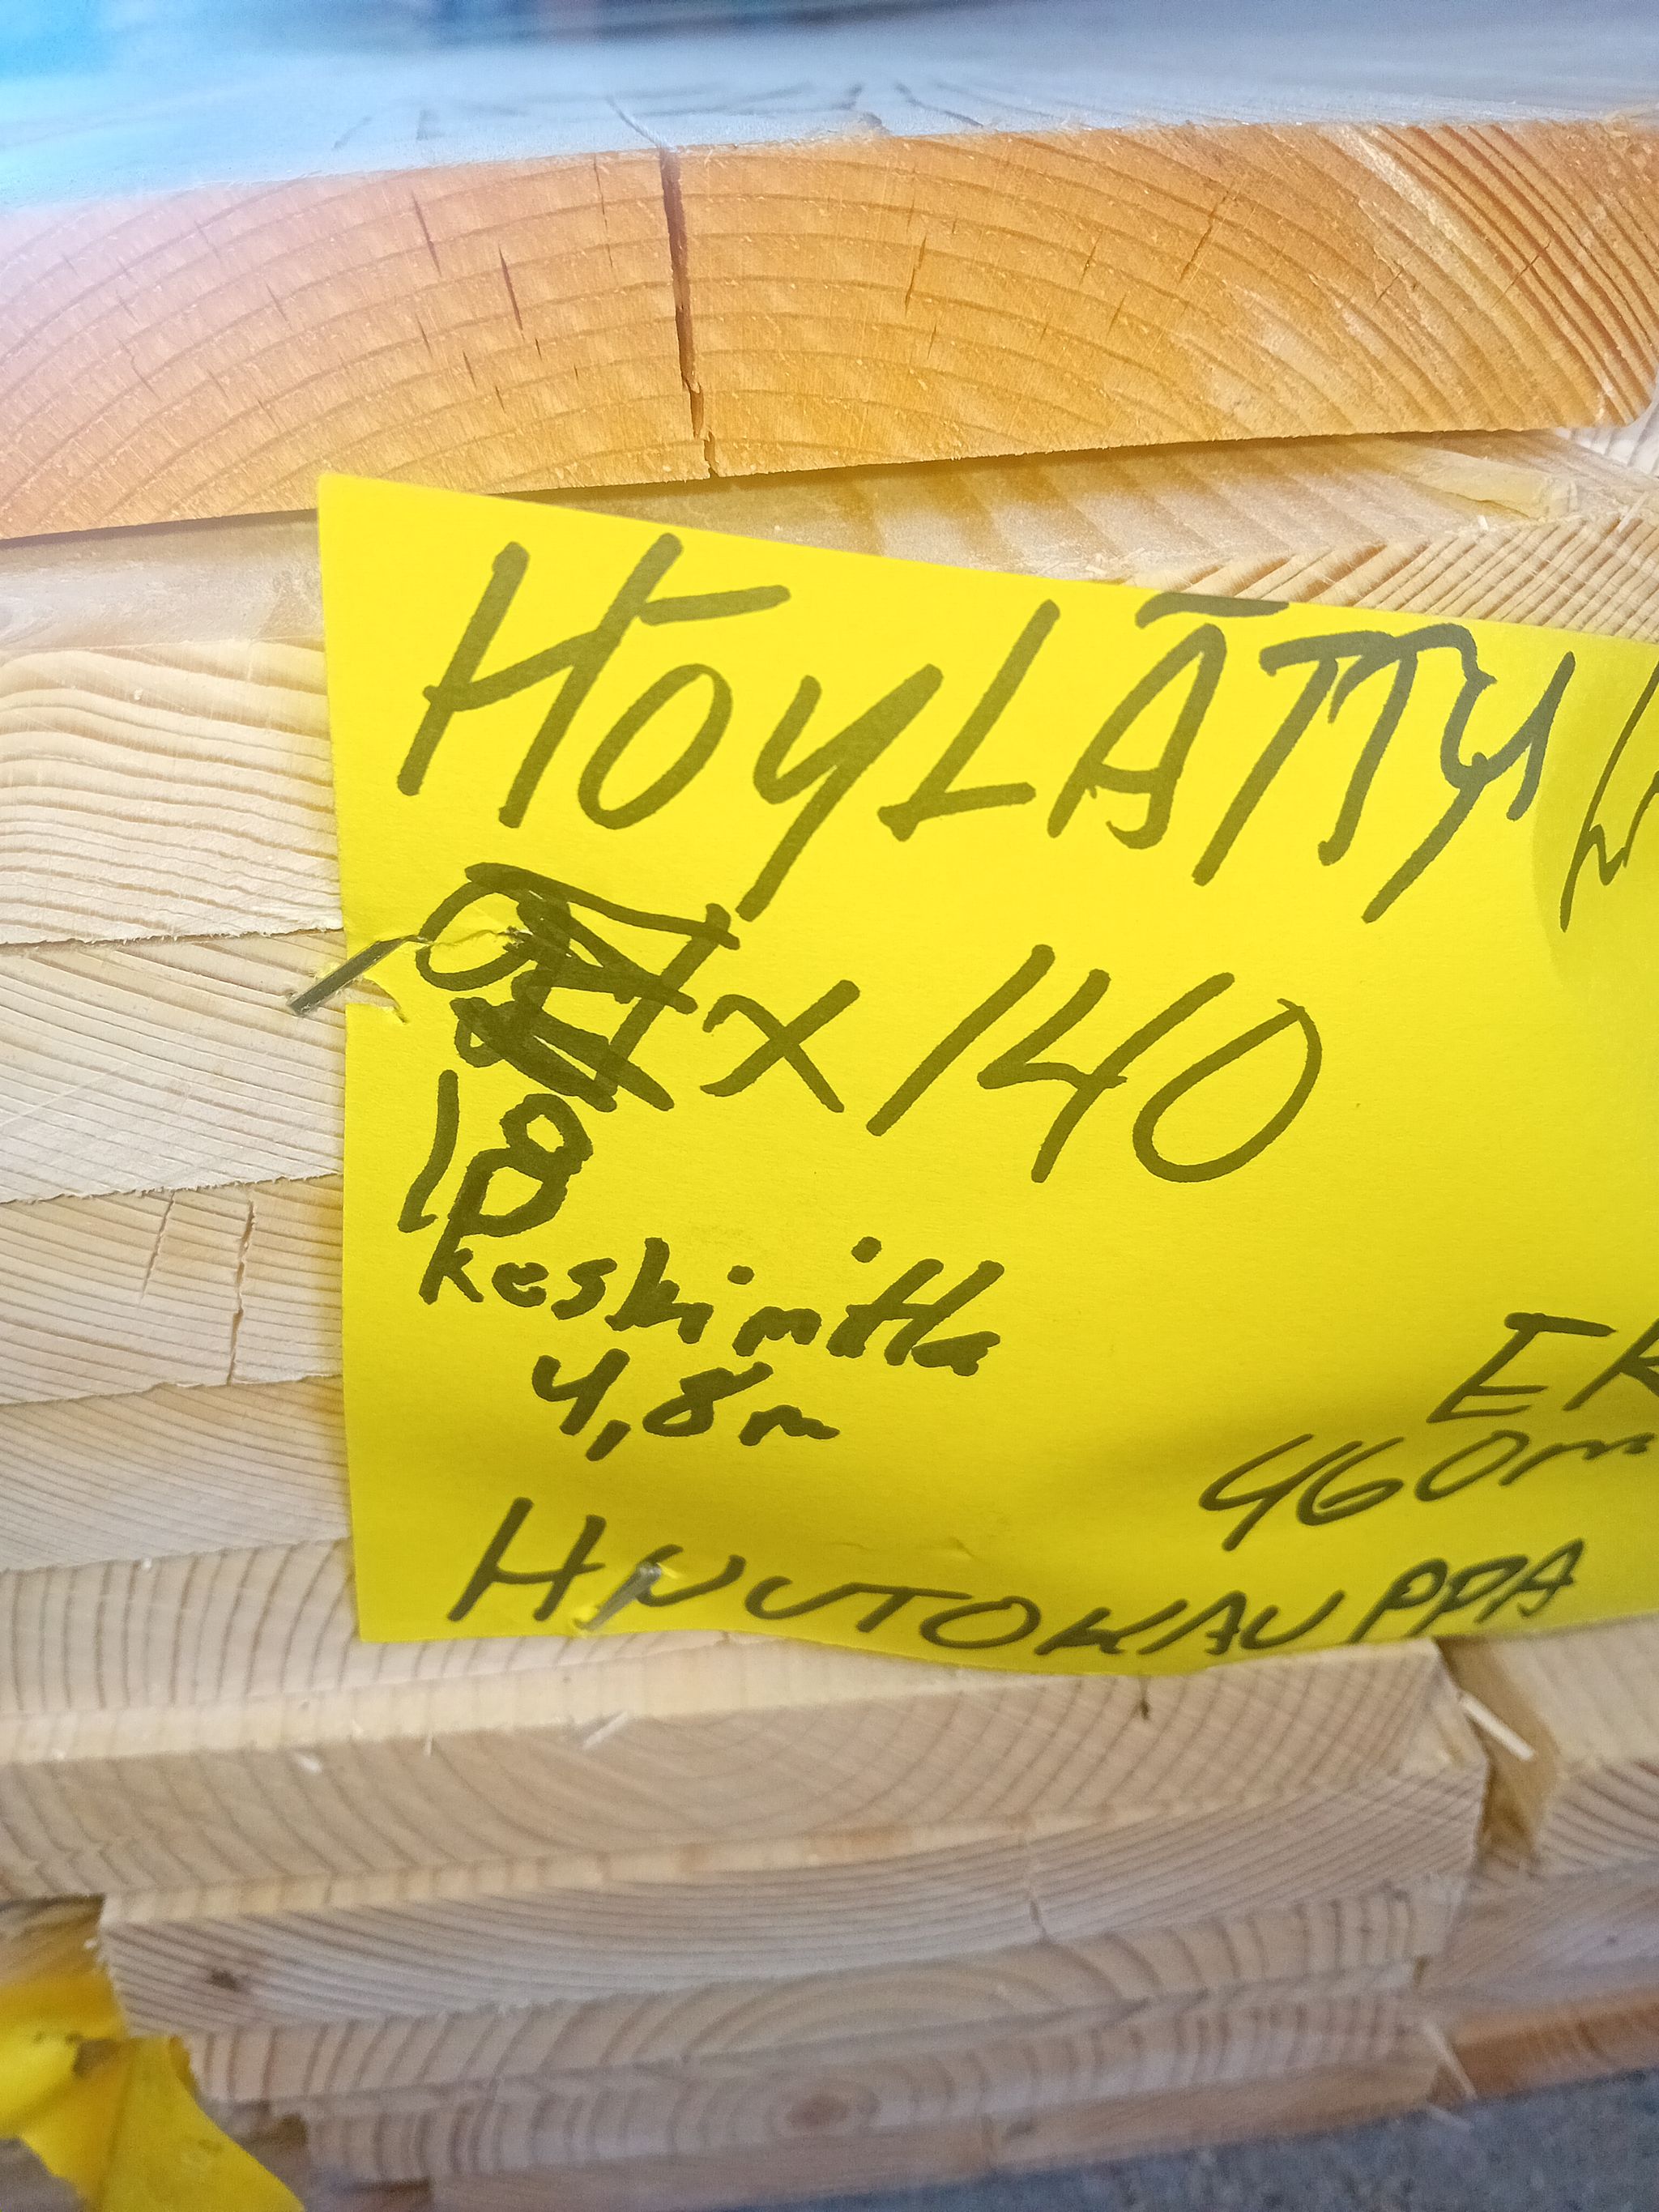 HÖYLÄTTY
x 140
18
keskimitta
4,8m
ER
460m
HNUTOKAUPPA